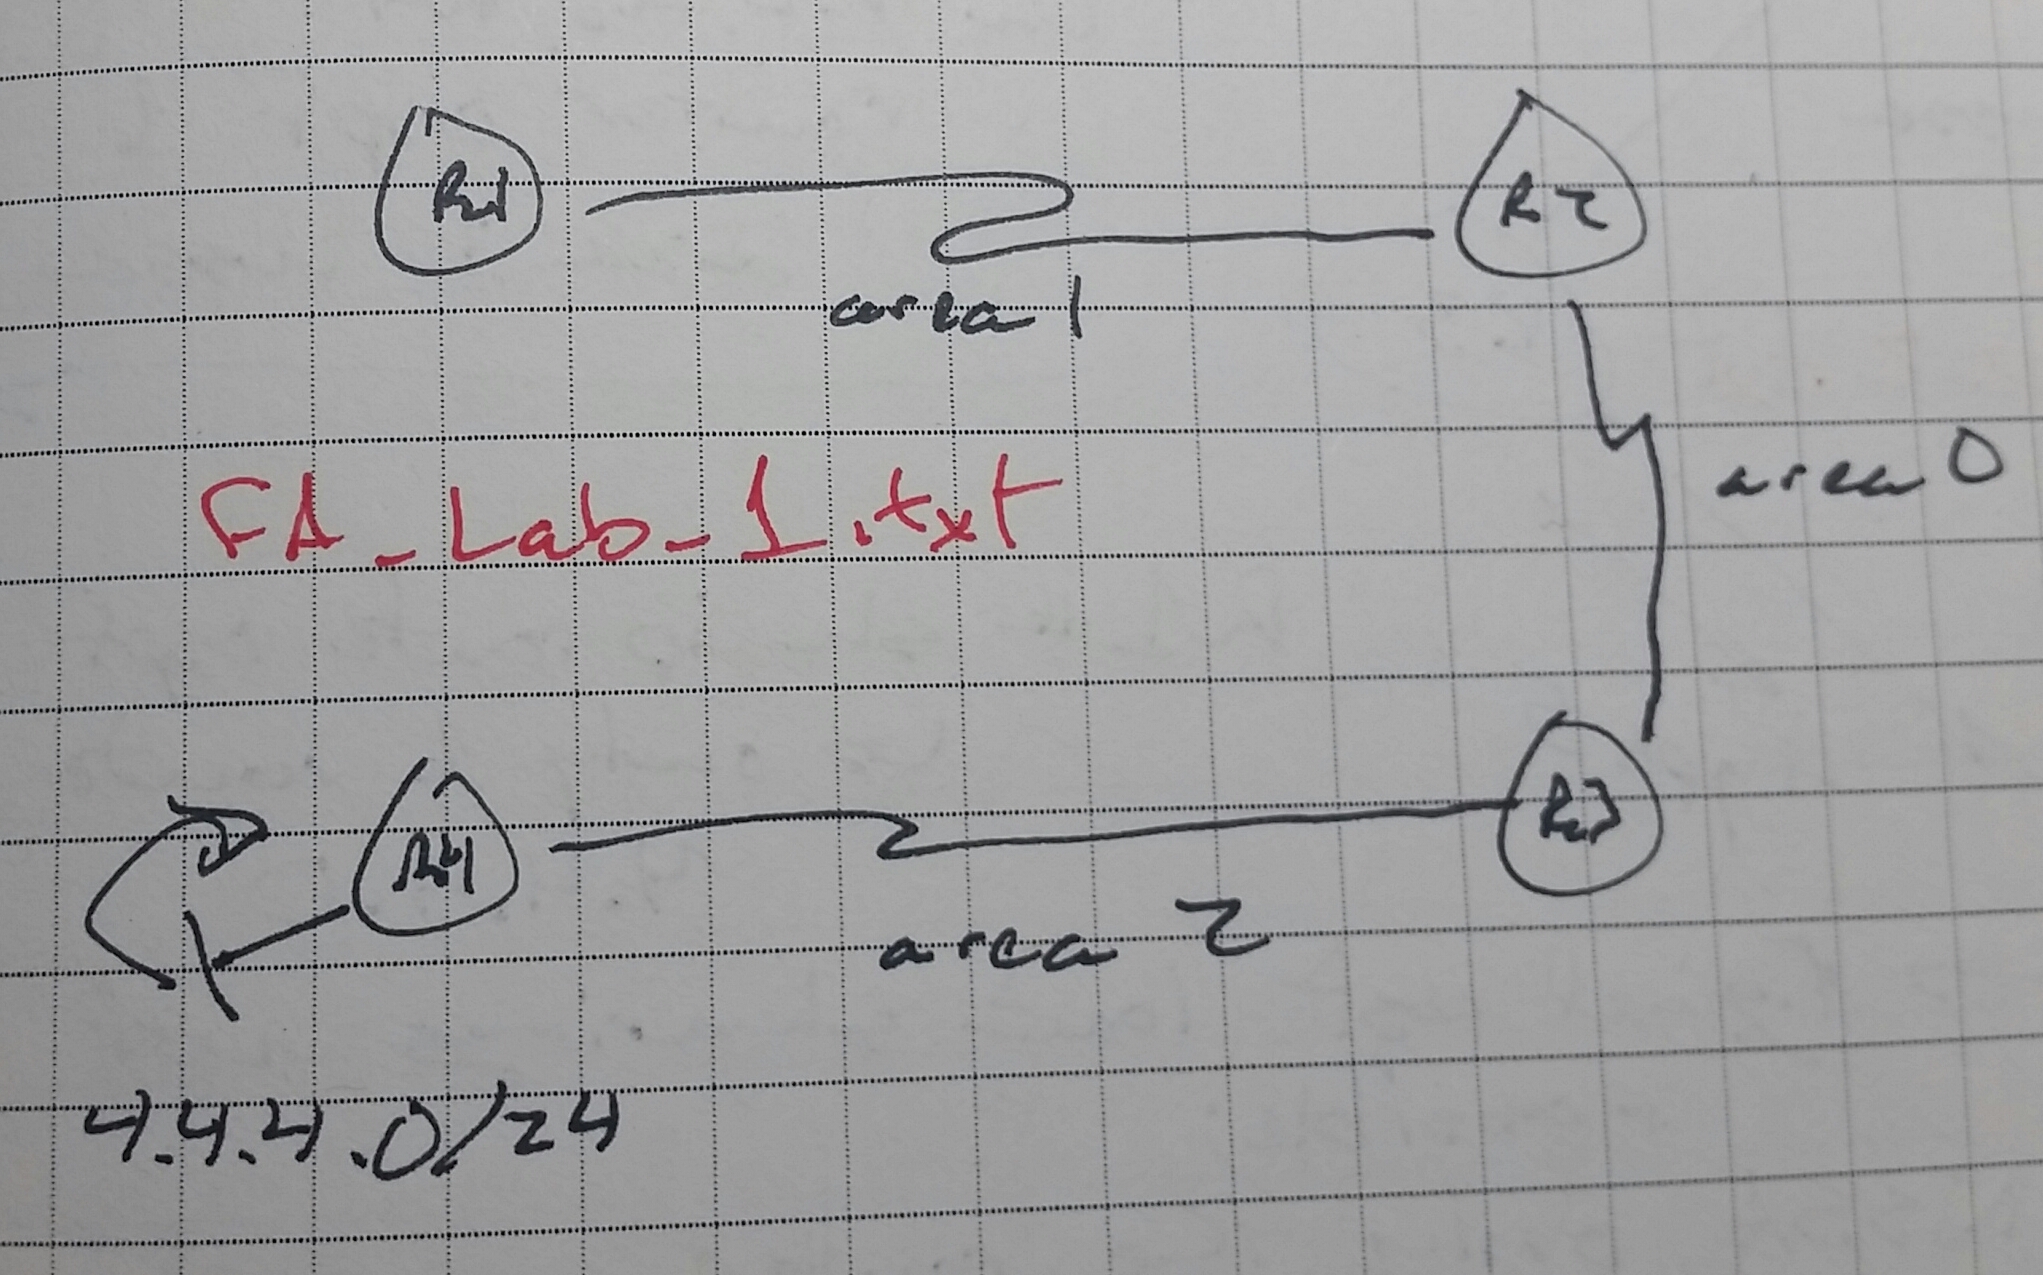 R1
R2
area 1
area 0
FA_Lab_1.txt
R4
R3
area 2
4.4.4.0/24